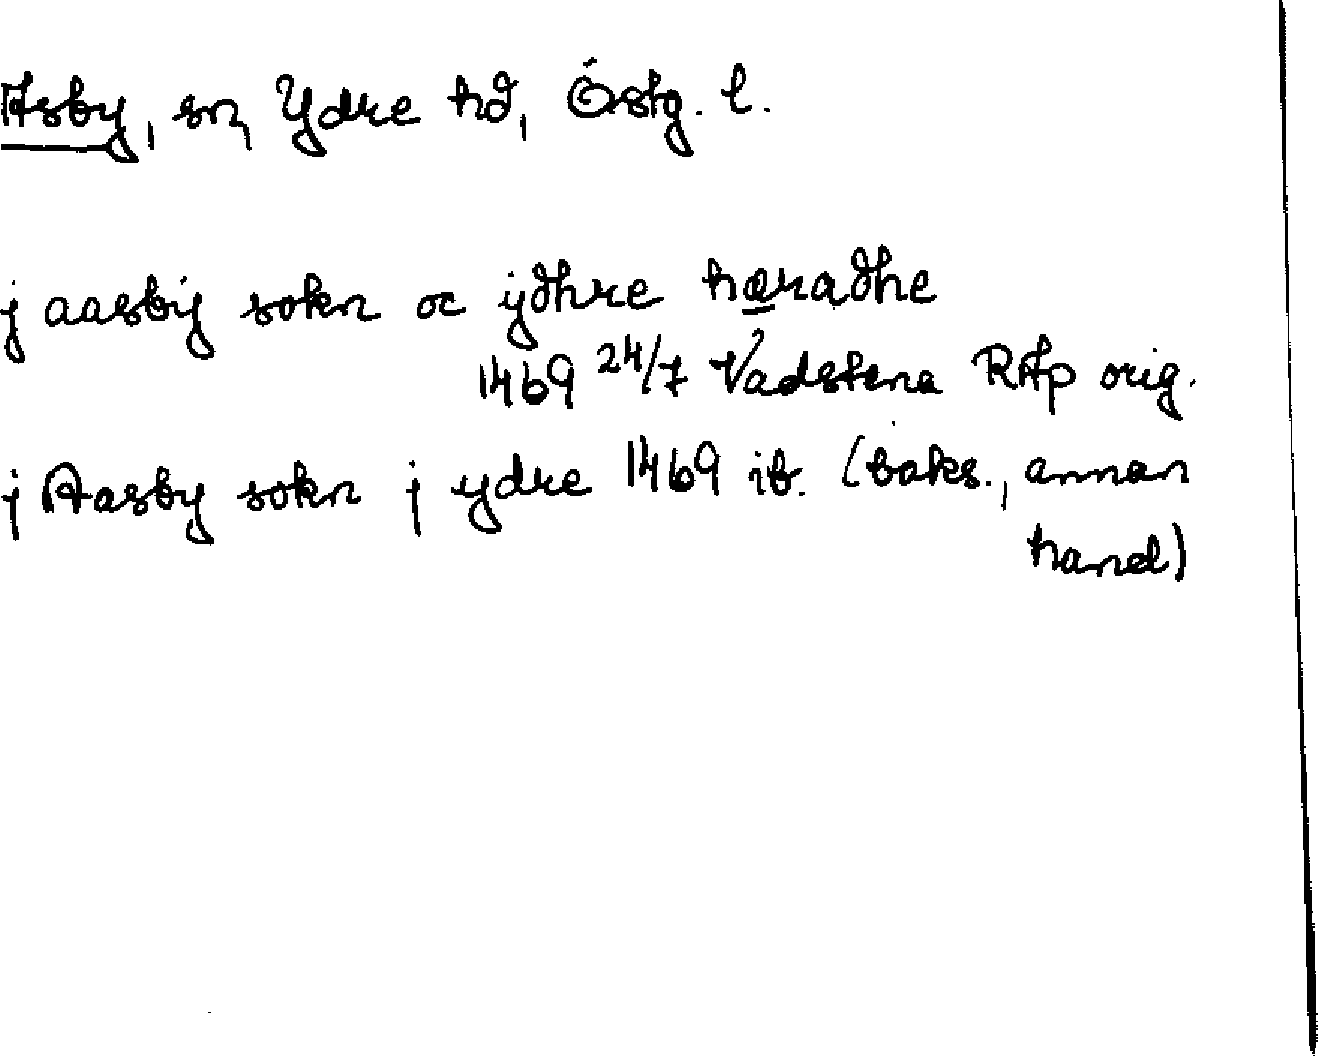 Asby, sn, Ydre hd, Östg. l.
j aasbÿ sokn oc ÿdhre hæradhe
1469 24/7 Vadstena RAp orig.
j Aasby sokn j ydre 1469 ib. (baks., annan
hand)